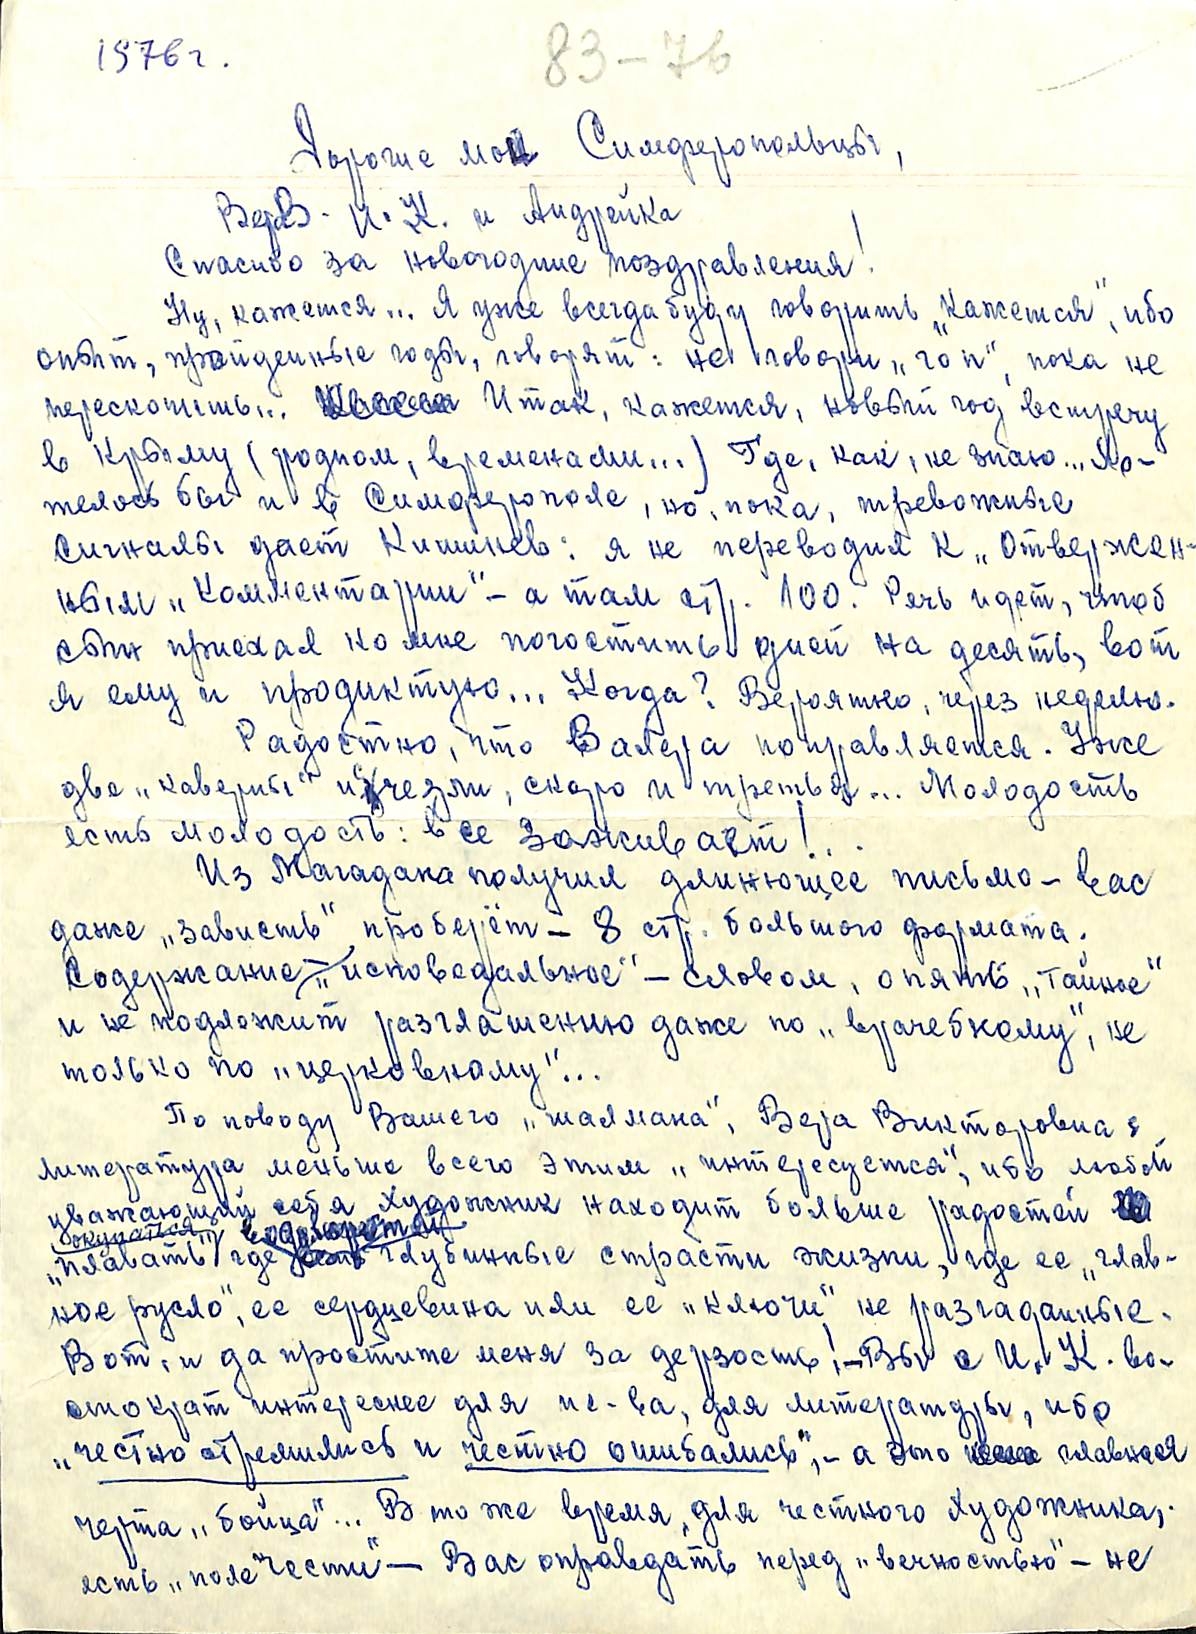 1976 г.
83-76
Дорогие мои Симферопольцы,
ВерВ. И.К. и Андрейка
Спасибо за новогодние поздравления!
Ну, кажется... Я уже всегда буду говорить „кажется", ибо
опыт, пройденные годы, говорят: не говори „гоп", пока не
перескочишь... Итак, кажется, новый год встречу
в Крыму (родном, временами...) Где, как, не знаю... Хо-
телось бы и в Симферополе, но, пока, тревожные
сигналы дает Кишинев: я не переводил к „Отвержен-
ным „Комментарии" – а там стр. 100. Речь идет, чтоб
сын приехал ко мне погостить дней на десять, вот
я ему и продиктую... Когда? Вероятно, через неделю.
Радостно, что Валера поправляется. Уже
две „каверны" исчезли, скоро и третья... Молодость
есть молодость: все заживает!...
Из Магадана получил длиннющее письмо – вас
даже „зависть" проберёт – 8 стр. большого формата.
Содержание – „исповедальное" – словом, опять „тайное"
и не подлежит разглашению даже по „врачебному", не
только по „церковному"...
По поводу Вашего „шалмана", Вера Викторовна:
литература меньше всего этим „интересуется", ибо любой
уважающий себя художник находит больше радостей
окунаться
„плавать", где глубинные страсти жизни, где ее „глав-
ное русло", ее сердцевина или ее „ключи", не разгаданные.
Вот, и да простите меня за дерзость! – Вы с И.К. во-
стократ интереснее для ис-ва, для литературы, ибо
„честно стремились и честно ошибались", – а это главная
черта „бойца"... В то же время, для честного художника,
есть „поле чести" – Вас оправдать перед „вечностью" – не